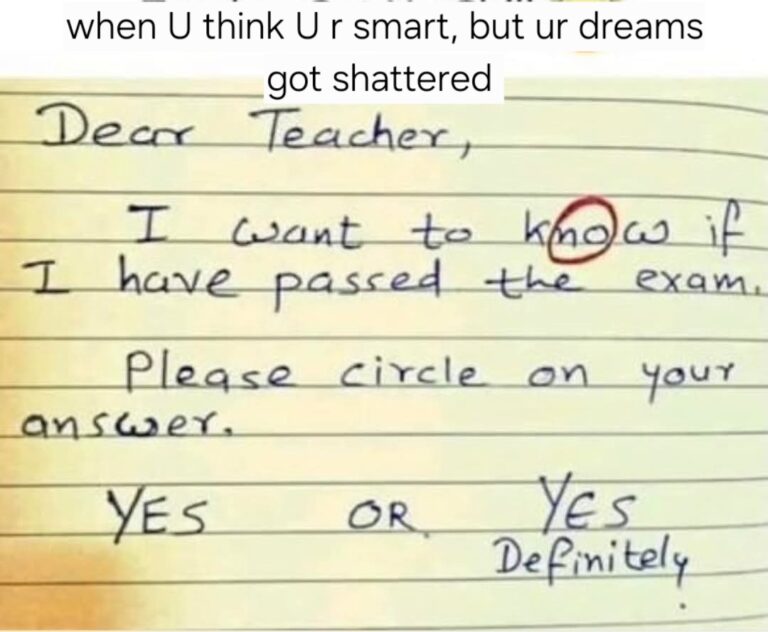 when U think U r smart, but ur dreams
got shattered
Dear Teacher,
I want to know if
I have passed the exam.
Please circle on your
answer.
YES OR YES
Definitely